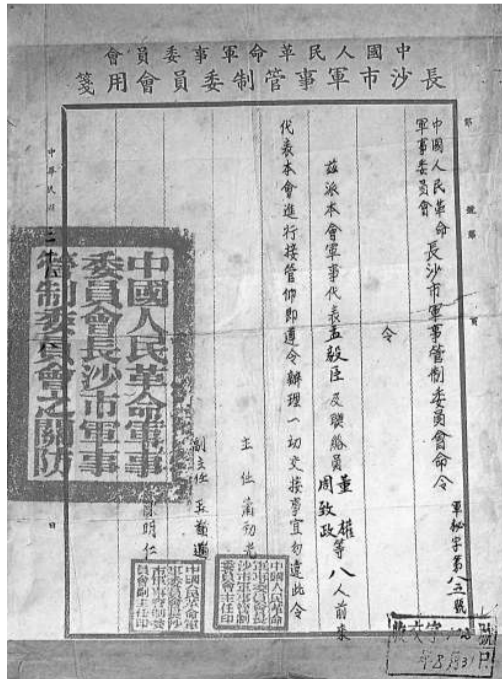 中國人民革命軍事委員會
長沙市軍事管制委員會用箋
中國人民革命
軍事委員會
長沙市軍事管制委員會命令
軍秘字第八五號
令
茲派本會軍事代表孟毅臣及聯絡員董權
周致政
等八人前來
代表本會進行接管仰即遵令辦理一切交接事宜勿違此令
主任 蕭勁光
副主任 王首道
明仁
中華民國三十
日
中國人民革命軍事
委員會長沙市軍事
管制委員會之關防
收文字
號
8月31日